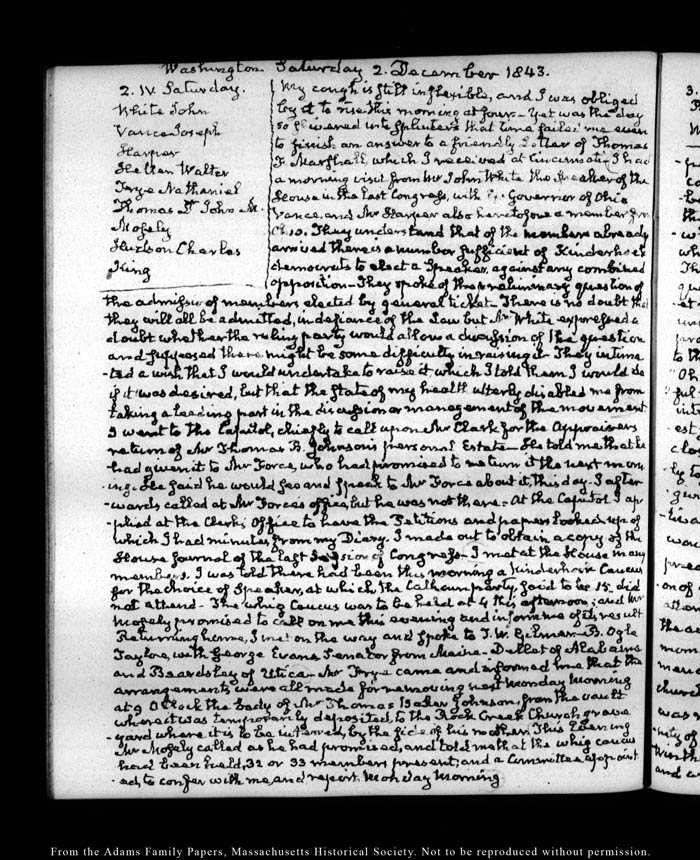 Washington Saturday 2. December 1843.
2. IV. Saturday.
White John
Vance Joseph
Harper
Helten Walter
Frye Nathaniel
Thomas Dr John M.
Mosely
Hudson Charles
King
My cough is still inflexible, and I was obliged
by it to rise this morning at four - Yet was the day
so slivered into splinters that time failed me even
to finish an answer to a friendly Letter of Thomas
F. Marshall, which I received at Cincinnati. I had
a morning visit from Mr John White the Speaker of the
House in the last Congress, with Ex Governor of Ohio
Vance, and Mr Harper also heretofore a member from
Ohio. They understand that of the members already
arrived there is a number sufficient of Kinderhook
democrats to elect a Speaker, against any combined
opposition - They spoke of the preliminary question of
the admission of members elected by general ticket - There is no doubt that
they will all be admitted, in defiance of the Law but Mr White expressed a
doubt whether the ruling party would allow a discussion of the question
and supposed there might be some difficulty in raising it - They intima
-ted a wish that I would undertake to raise it, which I told them I would do
if it was desired, but that the state of my health utterly disabled me from
taking a leading part in the discussion or management of the movement
I went to the Capitol, chiefly to call upon Mr Clark for the Appraisers
return of Mr Thomas B. Johnson's personal Estate - He told me that he
had given it to Mr Force, who had promised to return it the next morn
-ing. He said he would see and speak to Mr Force about it, this day. I after
-wards called at Mr Force's office, but he was not there - At the Capitol I ap
-plied at the Clerk's Office to have the Petitions and papers looked up of
which I had minutes, from my Diary. I made out to obtain a copy of the
House Journal of the last Session of Congress - I met at the House many
members. I was told there had been this morning a Kinderhook Caucus
for the choice of Speaker, at which the Calhoun party, said to be 15. did
not attend - The whig Caucus was to be held at 4 this afternoon; and Mr
Mosely promised to call on me this evening and inform me of its result
Returning home, I met on the way and spoke to J. W. Gilman - B. Ogle
Tayloe, with George Evans Senator from Maine - Dellet of Alabama
and Beardsley of Utica - Mr Frye came and informed me that the
arrangements were all made for removing next Monday Morning
at 9 O'Clock the body of Mr Thomas Baker Johnson, from the vault
where it was temporarily deposited, to the Rock Creek Church, grave
-yard where it is to be interred, by the side of his mother. This Evening
Mr Mosely called as he had promised, and told me that the whig caucus
had been held, 32 or 33 members present; and a Committee appoint
-ed, to confer with me, and report Monday Morning.
From the Adams Family Papers, Massachusetts Historical Society. Not to be reproduced without permission.